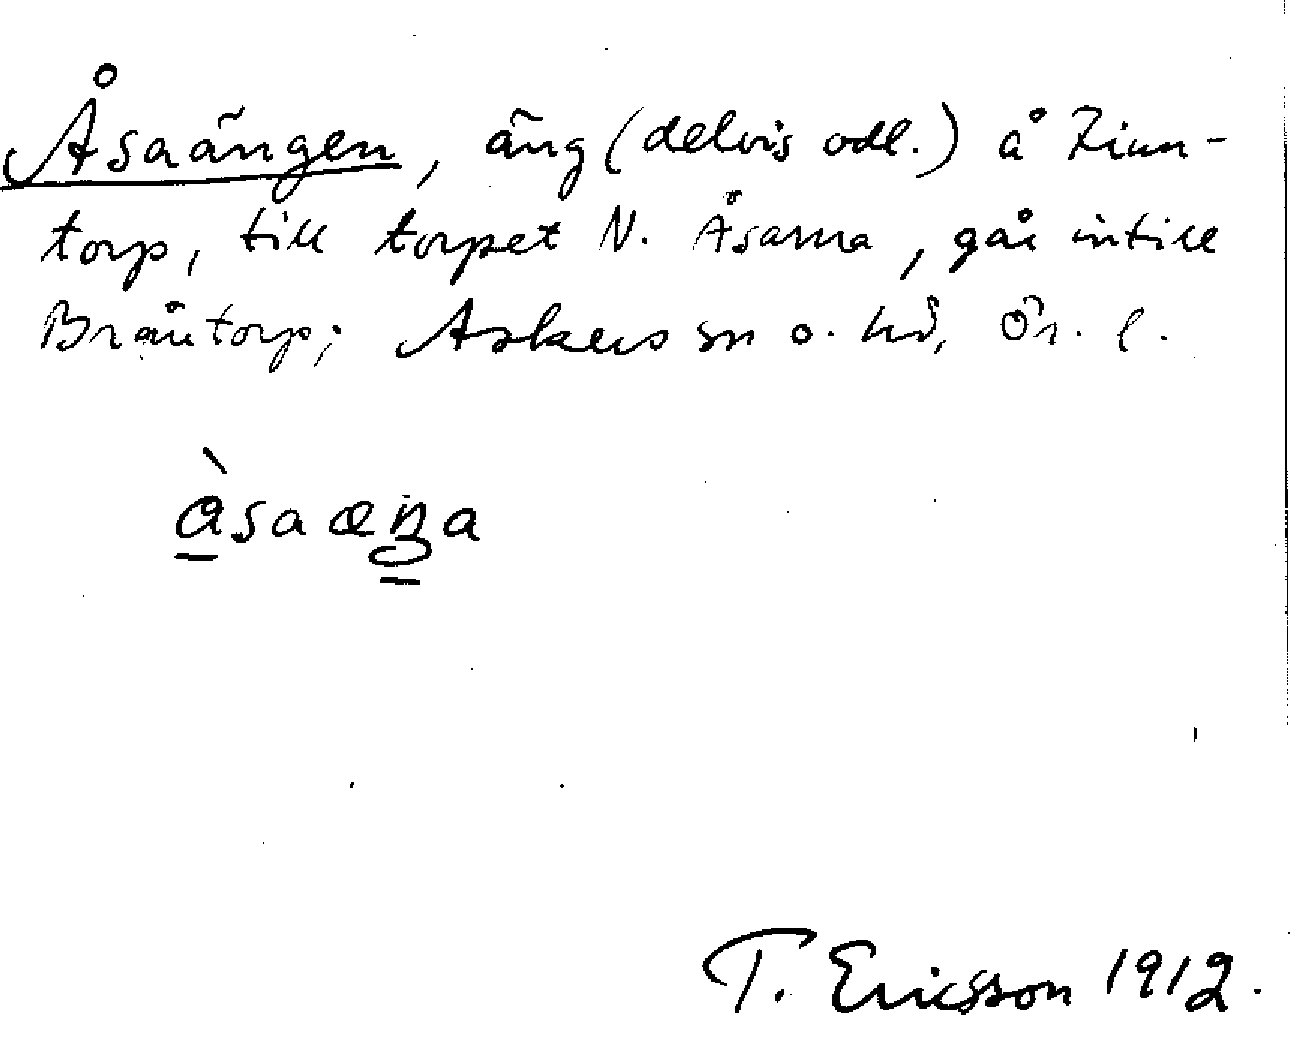 Åsaängen, äng (delvis odl.) å Zinn-
torp, till torpet N. Åsarna, går intill
Bråtorp; Askers sn o. hd, Ör. l.
T. Ericsson 1912.